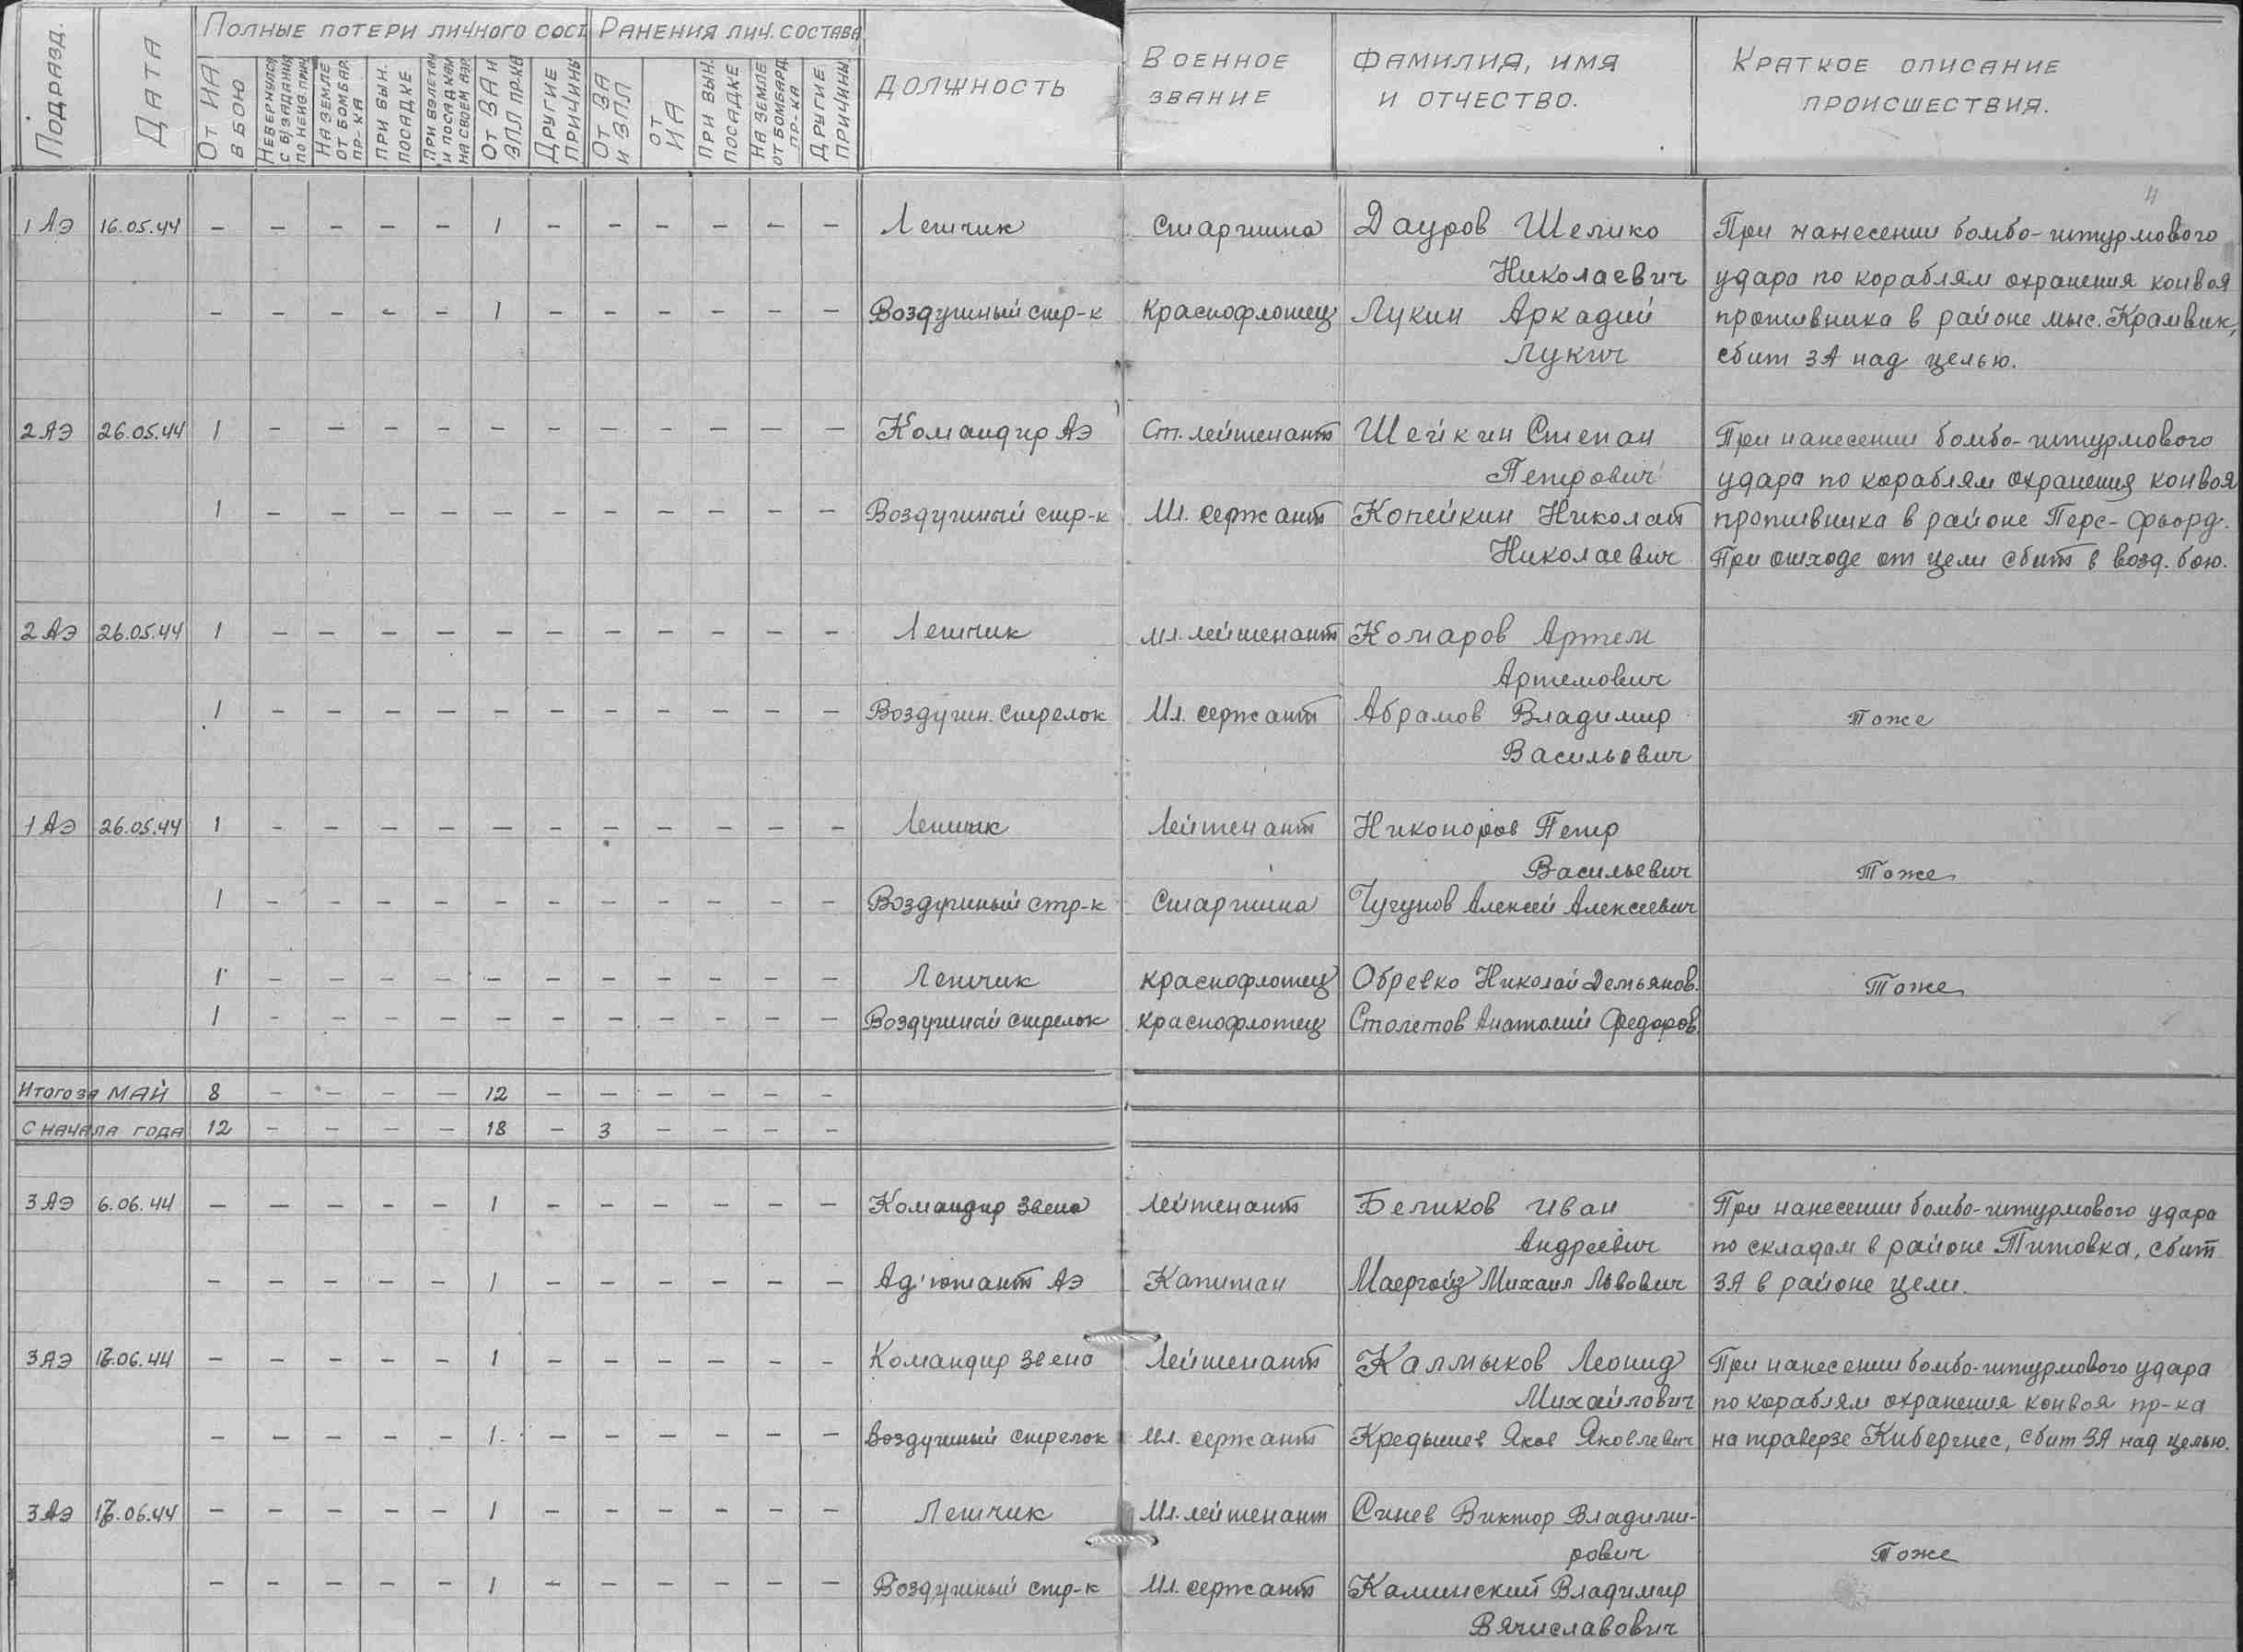 Полные потери личного сост Ранения лич. состава
Подразд.
Дата
От ИА в бою
Невернулся с б/задания по неизв. прич.
На земле от бомбар. пр-ка
При вын. посадке
При взлетах и посадках на своем аэр.
От ЗА и ЗПЛ пр-ка
Другие причины
От ЗА и ЗПЛ
от ИА
При вын. посадке
На земле от бомбард. пр-ка
Другие причины
Должность
Военное звание
Фамилия, имя и отчество.
Краткое описание происшествия.
4
1 АЭ 16.05.44 – – – – – 1 – – – – – – Летчик Старшина Дауров Шелико При нанесении бомбо-штурмового
Николаевич удара по кораблям охранения конвоя
– – – – – 1 – – – – – – Воздушный стр-к Краснофлотец Лукин Аркадий противника в районе мыс. Крамвик,
Лукич сбит ЗА над целью.
2 АЭ 26.05.44 1 – – – – – – – – – – – Командир АЭ Ст. лейтенант Шейкин Степан При нанесении бомбо-штурмового
Петрович удара по кораблям охранения конвоя
1 – – – – – – – – – – – Воздушный стр-к Мл. сержант Копейкин Николай противника в районе Перс-фьорд.
Николаевич При отходе от цели сбит в возд. бою.
2 АЭ 26.05.44 1 – – – – – – – – – – – Летчик мл. лейтенант Комаров Артем
Артемович
1 – – – – – – – – – – – Воздушн. стрелок Мл. сержант Абрамов Владимир Тоже
Васильевич
1 АЭ 26.05.44 1 – – – – – – – – – – – Летчик Лейтенант Никоноров Петр
Васильевич Тоже
1 – – – – – – – – – – – Воздушный стр-к Старшина Чугунов Алексей Алексеевич
1 – – – – – – – – – – – Летчик краснофлотец Обревко Николай Демьянов. Тоже
1 – – – – – – – – – – – Воздушный стрелок краснофлотец Столетов Анатолий Федоров
Итого за МАЙ 8 – – – – 12 – – – – – –
С начала года 12 – – – – 18 – 3 – – – –
3 АЭ 6.06.44 – – – – – 1 – – – – – – Командир звена лейтенант Беликов Иван При нанесении бомбо-штурмового удара
Андреевич по складам в районе Титовка, сбит
– – – – – 1 – – – – – – Ад'ютант АЭ Капитан Маергойз Михаил Львович ЗА в районе цели.
3 АЭ .06.44 – – – – – 1 – – – – – – Командир звена Лейтенант Калмыков Леонид При нанесении бомбо-штурмового удара
Михайлович по кораблям охранения конвоя пр-ка
– – – – – 1 – – – – – – воздушный стрелок Мл. сержант Кредышев Яков Яковлевич на траверзе Кибергнес, сбит ЗА над целью.
3 АЭ .06.44 – – – – – 1 – – – – – – Летчик Мл. лейтенант Синев Виктор Владими-
рович Тоже
– – – – – 1 – – – – – – Воздушный стр-к Мл. сержант Каминский Владимир
Вячиславович